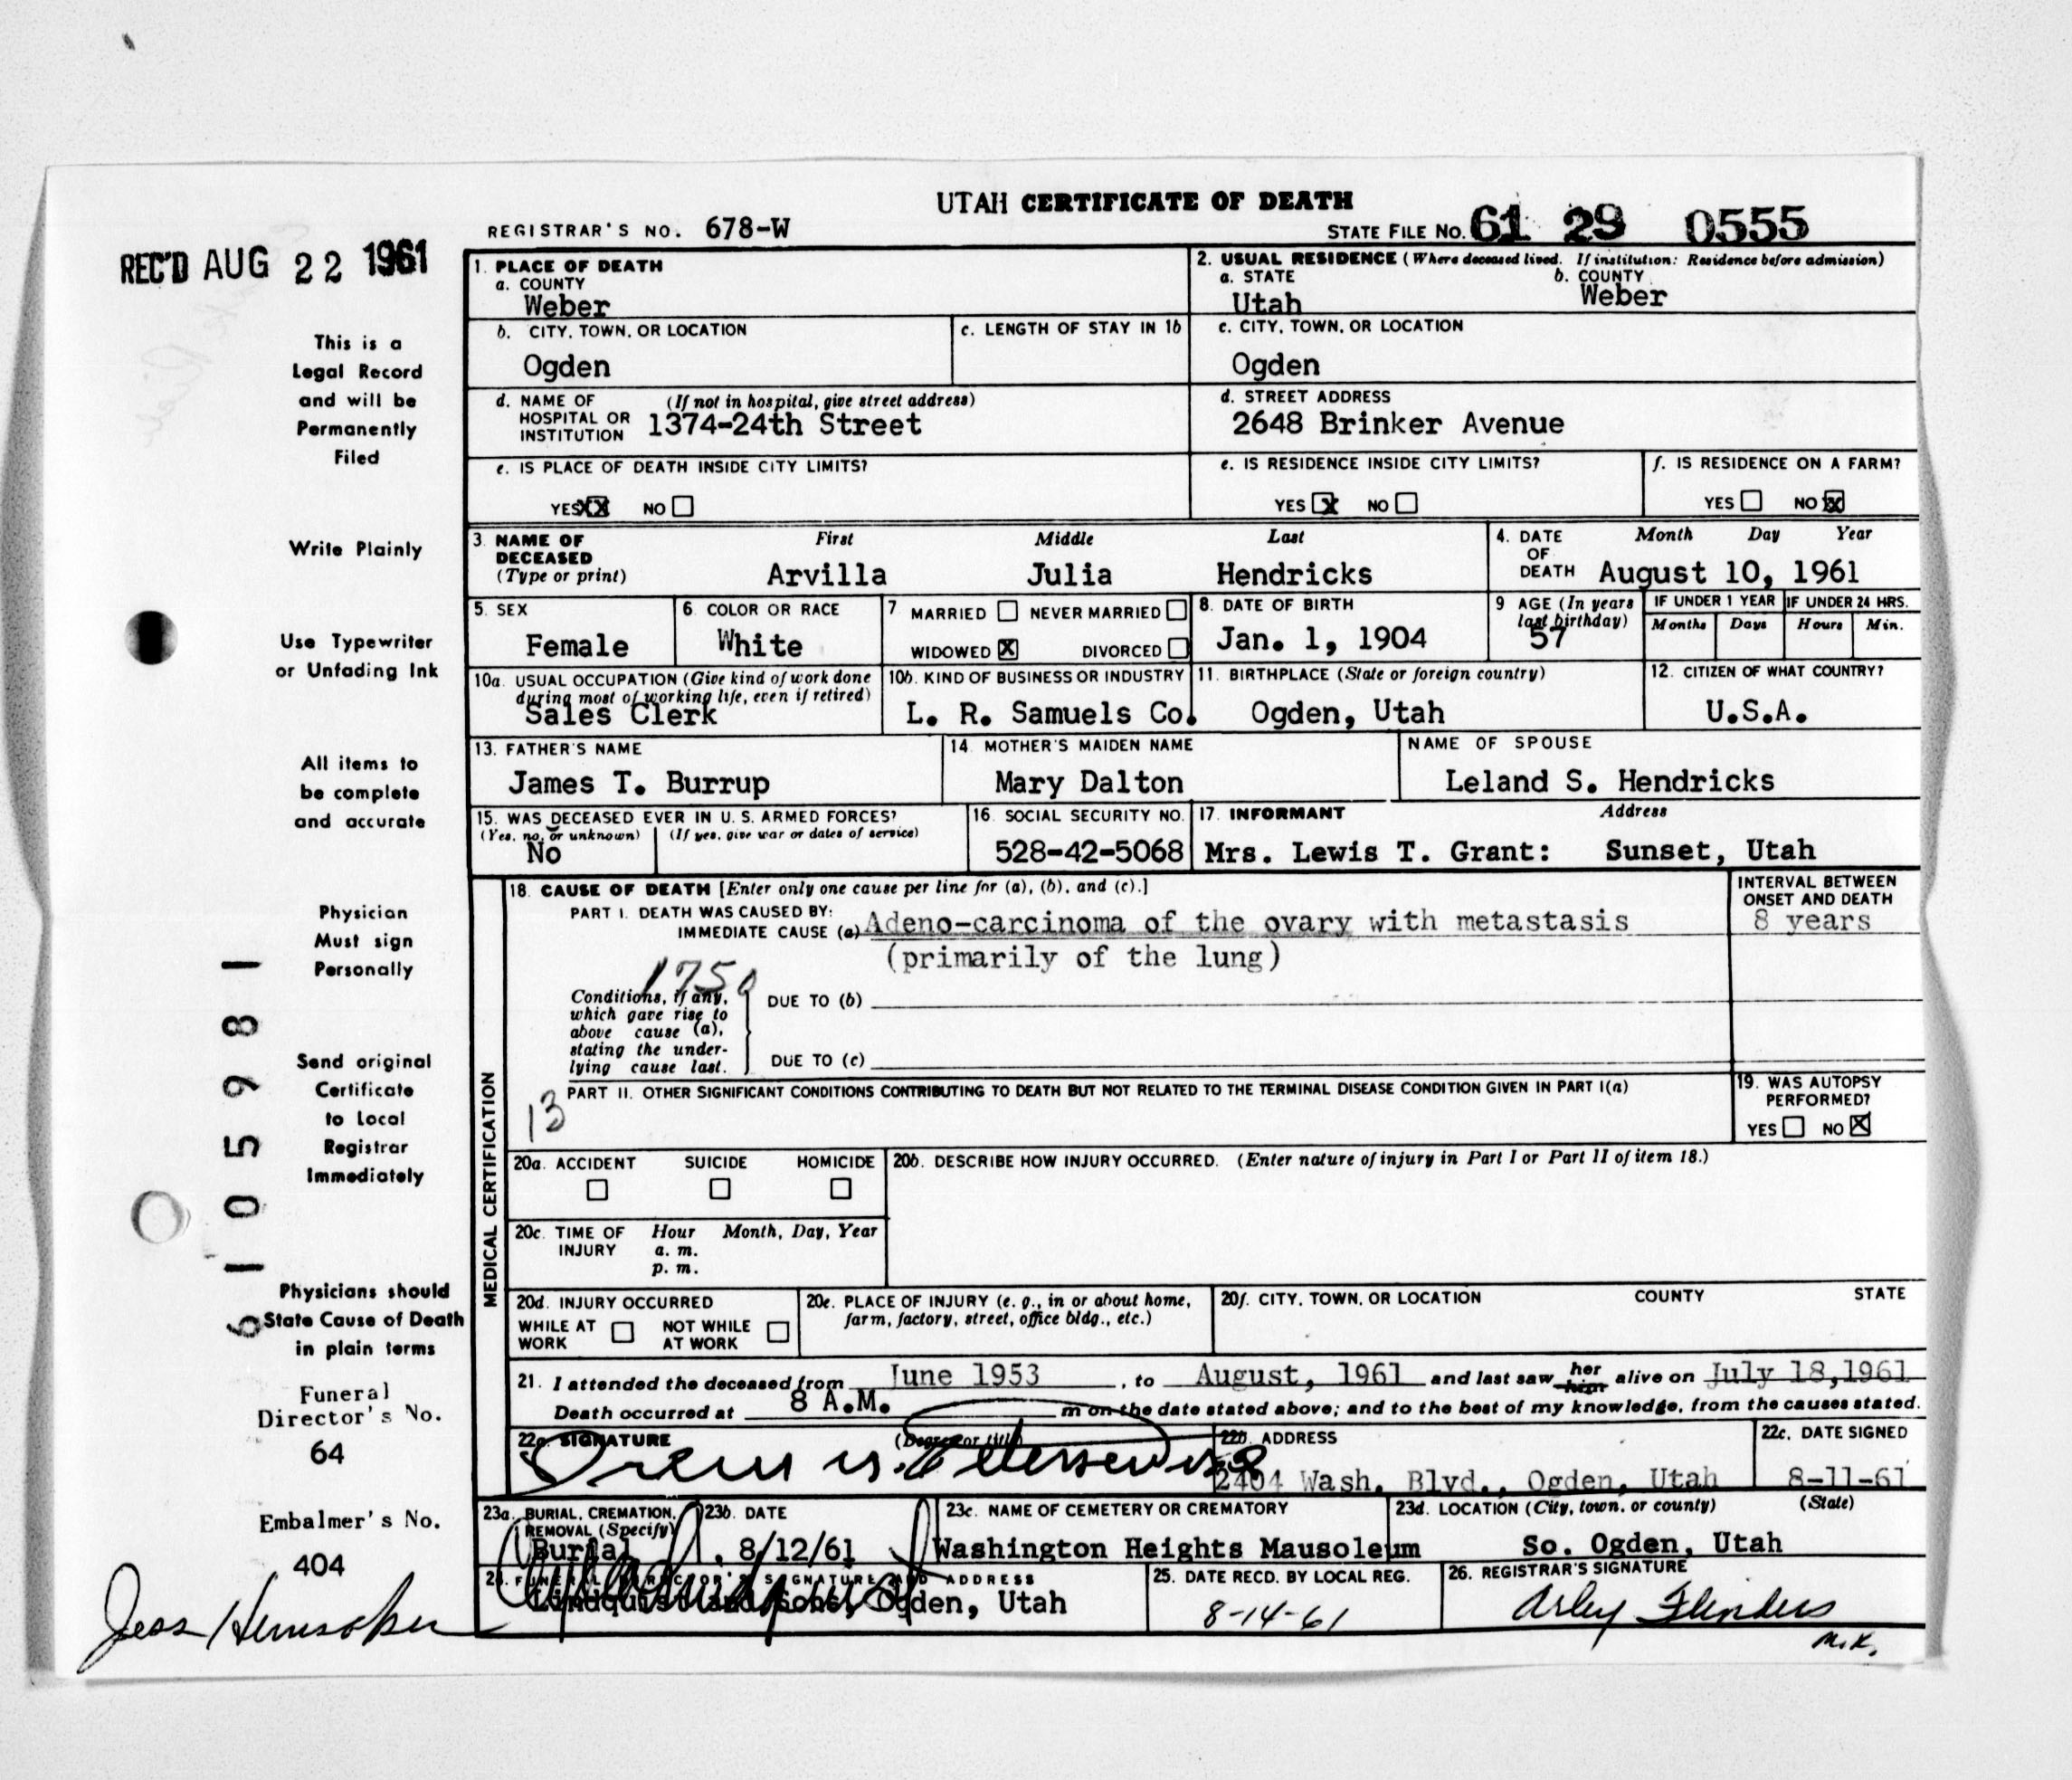 UTAH CERTIFICATE OF DEATH
REGISTRAR'S NO. 678-W
STATE FILE NO. 61 29 0555
REC'D AUG 22 1961
1. PLACE OF DEATH
a. COUNTY
Weber
2. USUAL RESIDENCE (Where deceased lived. If institution: Residence before admission)
a. STATE
Utah
b. COUNTY
Weber
b. CITY, TOWN, OR LOCATION
Ogden
c. LENGTH OF STAY IN 1b
c. CITY, TOWN, OR LOCATION
Ogden
d. NAME OF (If not in hospital, give street address)
HOSPITAL OR
INSTITUTION 1374-24th Street
d. STREET ADDRESS
2648 Brinker Avenue
e. IS PLACE OF DEATH INSIDE CITY LIMITS?
YES XX NO
e. IS RESIDENCE INSIDE CITY LIMITS?
YES X NO
f. IS RESIDENCE ON A FARM?
YES NO X
3. NAME OF DECEASED
(Type or print)
First Middle Last
Arvilla Julia Hendricks
4. DATE OF DEATH
Month Day Year
August 10, 1961
5. SEX
Female
6. COLOR OR RACE
White
7 MARRIED NEVER MARRIED
WIDOWED X DIVORCED
8. DATE OF BIRTH
Jan. 1, 1904
9 AGE (In years last birthday)
57
IF UNDER 1 YEAR
Months Days
IF UNDER 24 HRS.
Hours Min.
10a. USUAL OCCUPATION (Give kind of work done
during most of working life, even if retired)
Sales Clerk
10b. KIND OF BUSINESS OR INDUSTRY
L. R. Samuels Co.
11. BIRTHPLACE (State or foreign country)
Ogden, Utah
12. CITIZEN OF WHAT COUNTRY?
U.S.A.
13. FATHER'S NAME
James T. Burrup
14. MOTHER'S MAIDEN NAME
Mary Dalton
NAME OF SPOUSE
Leland S. Hendricks
15. WAS DECEASED EVER IN U. S. ARMED FORCES?
(Yes, no, or unknown) (If yes, give war or dates of service)
No
16. SOCIAL SECURITY NO.
528-42-5068
17. INFORMANT Address
Mrs. Lewis T. Grant: Sunset, Utah
MEDICAL CERTIFICATION
18. CAUSE OF DEATH [Enter only one cause per line for (a), (b), and (c).]
PART I. DEATH WAS CAUSED BY:
IMMEDIATE CAUSE (a) Adeno-carcinoma of the ovary with metastasis
(primarily of the lung)
INTERVAL BETWEEN
ONSET AND DEATH
8 years
1750
Conditions, if any,
which gave rise to
above cause (a),
stating the under-
lying cause last.
DUE TO (b)
DUE TO (c)
PART II. OTHER SIGNIFICANT CONDITIONS CONTRIBUTING TO DEATH BUT NOT RELATED TO THE TERMINAL DISEASE CONDITION GIVEN IN PART I(a)
13
19. WAS AUTOPSY
PERFORMED?
YES NO X
20a. ACCIDENT SUICIDE HOMICIDE
20b. DESCRIBE HOW INJURY OCCURRED. (Enter nature of injury in Part I or Part II of item 18.)
20c. TIME OF INJURY
Hour Month, Day, Year
a. m.
p. m.
20d. INJURY OCCURRED
WHILE AT WORK NOT WHILE AT WORK
20e. PLACE OF INJURY (e. g., in or about home,
farm, factory, street, office bldg., etc.)
20f. CITY, TOWN, OR LOCATION COUNTY STATE
21. I attended the deceased from June 1953, to August, 1961 and last saw her him alive on July 18,1961
Death occurred at 8 A.M. m on the date stated above; and to the best of my knowledge, from the causes stated.
22a. SIGNATURE (Degree or title)
22b. ADDRESS
2404 Wash. Blvd., Ogden, Utah
22c. DATE SIGNED
8-11-61
23a. BURIAL, CREMATION,
REMOVAL (Specify)
Burial
23b. DATE
8/12/61
23c. NAME OF CEMETERY OR CREMATORY
Washington Heights Mausoleum
23d. LOCATION (City, town, or county) (State)
So. Ogden, Utah
24. FUNERAL DIRECTOR'S SIGNATURE AND ADDRESS
Lindquist and Sons, Ogden, Utah
25. DATE RECD. BY LOCAL REG.
8-14-61
26. REGISTRAR'S SIGNATURE
Arley Flinders
M.K.
This is a
Legal Record
and will be
Permanently
Filed
Write Plainly
Use Typewriter
or Unfading Ink
All items to
be complete
and accurate
Physician
Must sign
Personally
Send original
Certificate
to Local
Registrar
Immediately
Physicians should
State Cause of Death
in plain terms
Funeral
Director's No.
64
Embalmer's No.
404